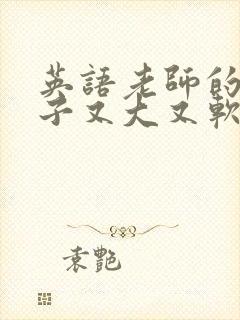 英語老師的
子又大又軟
袁艷